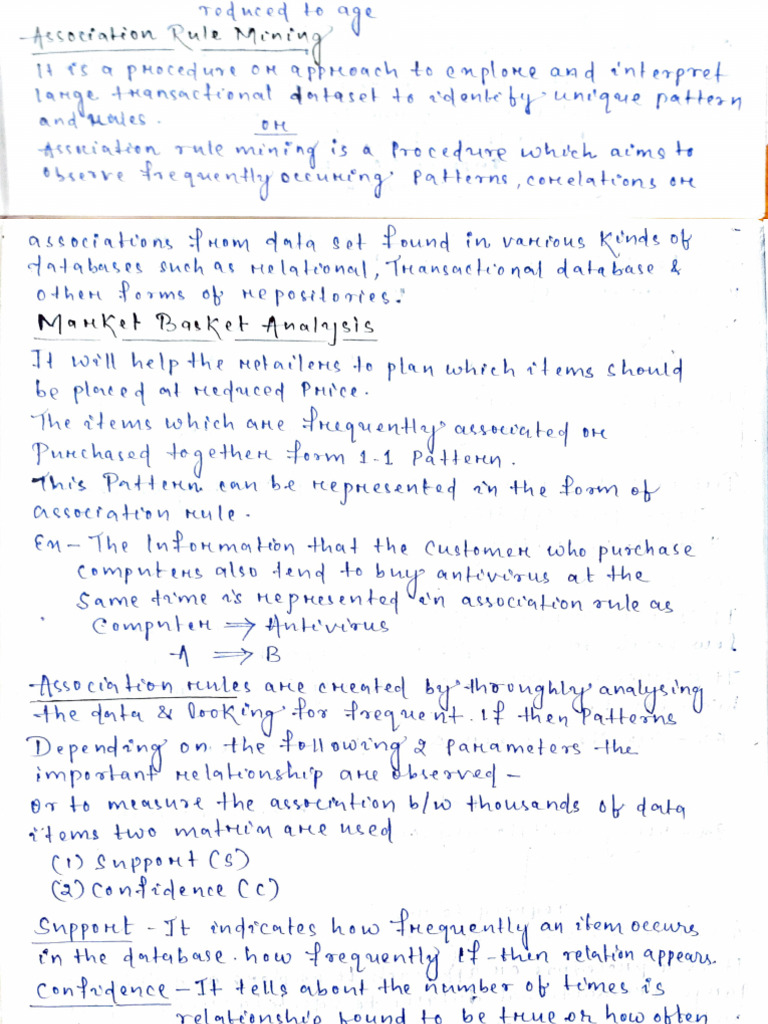 reduced to age
Association Rule Mining
It is a procedure or approach to explore and interpret
large transactional dataset to identify unique pattern
and rules.
OR
Association rule mining is a Procedure which aims to
observe frequently occuring Patterns, corelations or
associations from data set found in various kinds of
databases such as relational, Transactional database &
other forms of repositories.
Market Basket Analysis
It will help the retailers to plan which items should
be placed at reduced Price.
The items which are frequently associated or
Purchased together form 1-1 Pattern.
This Pattern can be represented in the form of
association rule.
Ex- The Information that the customer who purchase
computers also tend to buy antivirus at the
same time is represented in association rule as
Computer ⇒ Antivirus
A ⇒ B
Association rules are created by thoroughly analysing
the data & looking for frequent. If then Patterns
Depending on the following 2 Parameters the
important relationship are observed -
or to measure the association b/w thousands of data
items two matrix are used
(1) Support (S)
(2) Confidence (C)
Support - It indicates how frequently an item occurs
in the database. how frequently If-then relation appears.
Confidence - It tells about the number of times is
relationship found to be true or how often